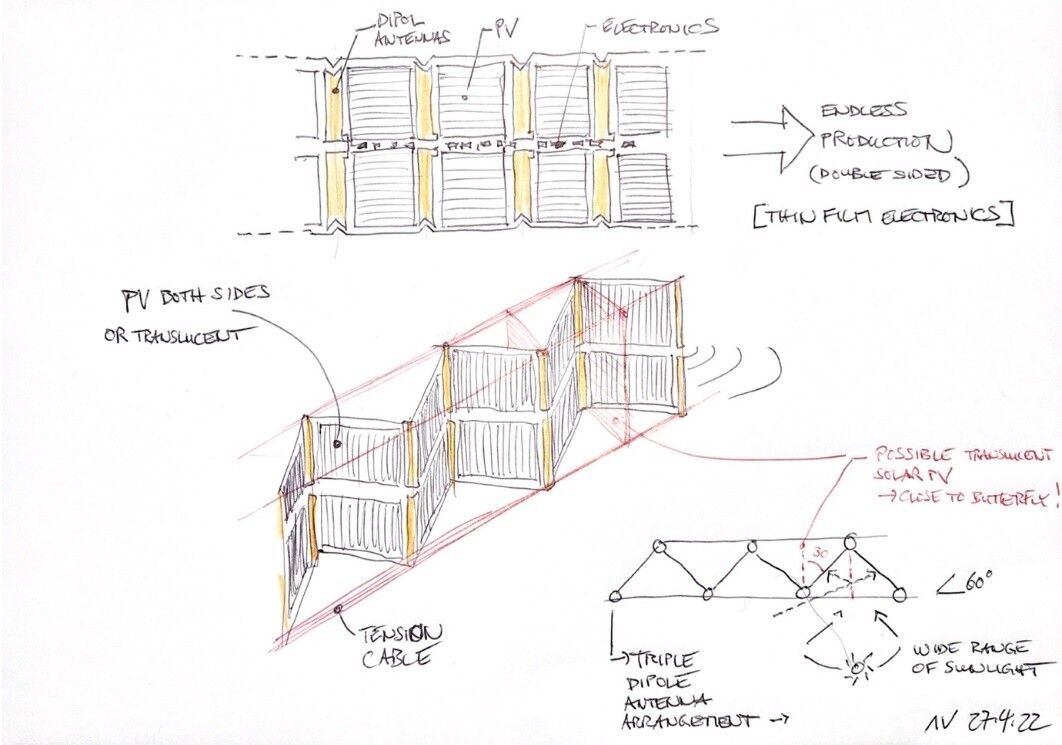 DIPOL
ANTENNAS
PV
ELECTRONICS
ENDLESS
PRODUCTION
(DOUBLE SIDED)
[THIN FILM ELECTRONICS]
PV BOTH SIDES
OR TRANSLUCENT
POSSIBLE TRANSLUCENT
SOLAR PV
→ CLOSE TO BUTTERFLY!
30
∠60°
TENSION
CABLE
→ TRIPLE
DIPOLE
ANTENNA
ARRANGEMENT →
WIDE RANGE
OF SUNLIGHT
NV 27.4.22